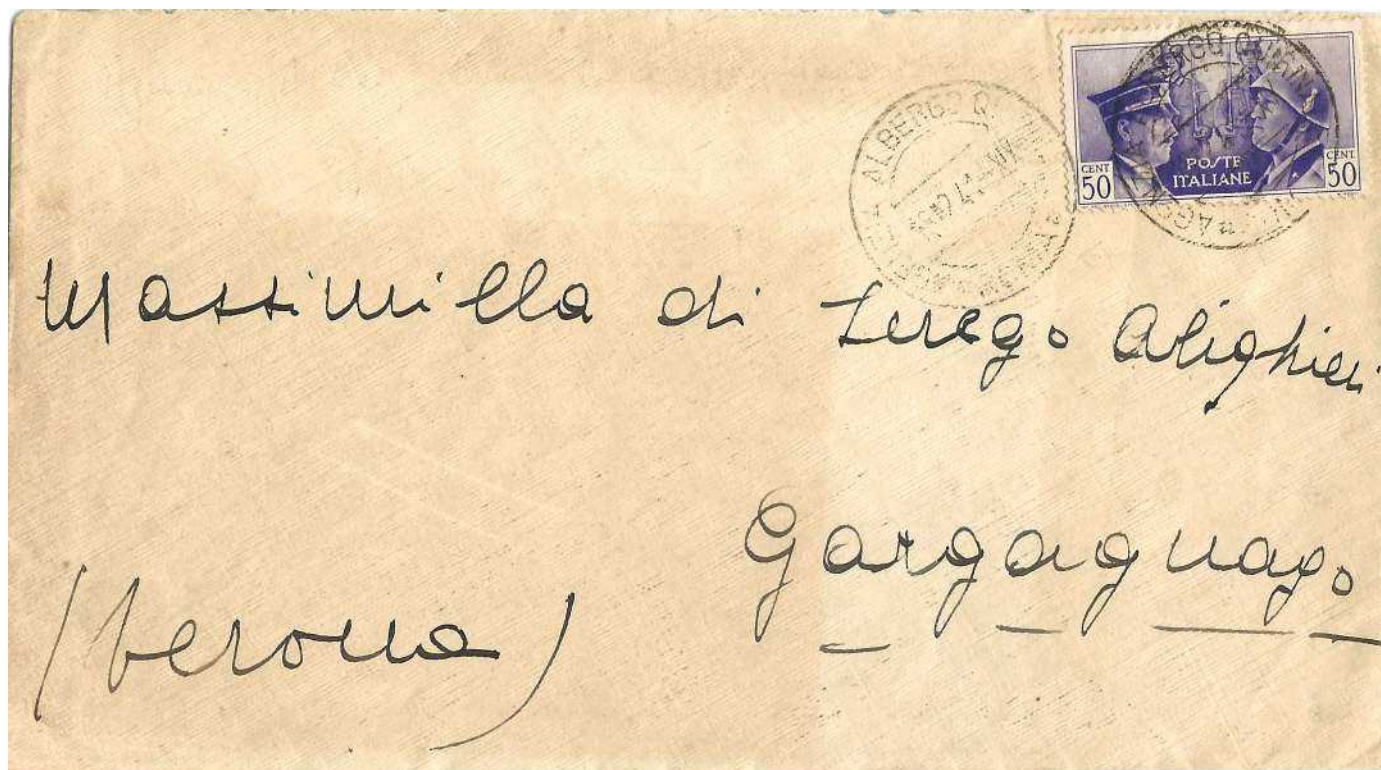 CENT. 50
POSTE
ITALIANE
CENT. 50
ALBERGO
Massimilla di Serego Alighieri
Gargagnago
(Verona)